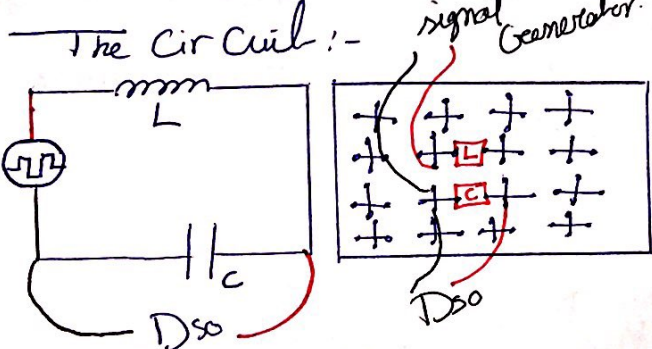 The CirCuit :-
signal Geenerator.
L
L
C
C
Dso
Dso